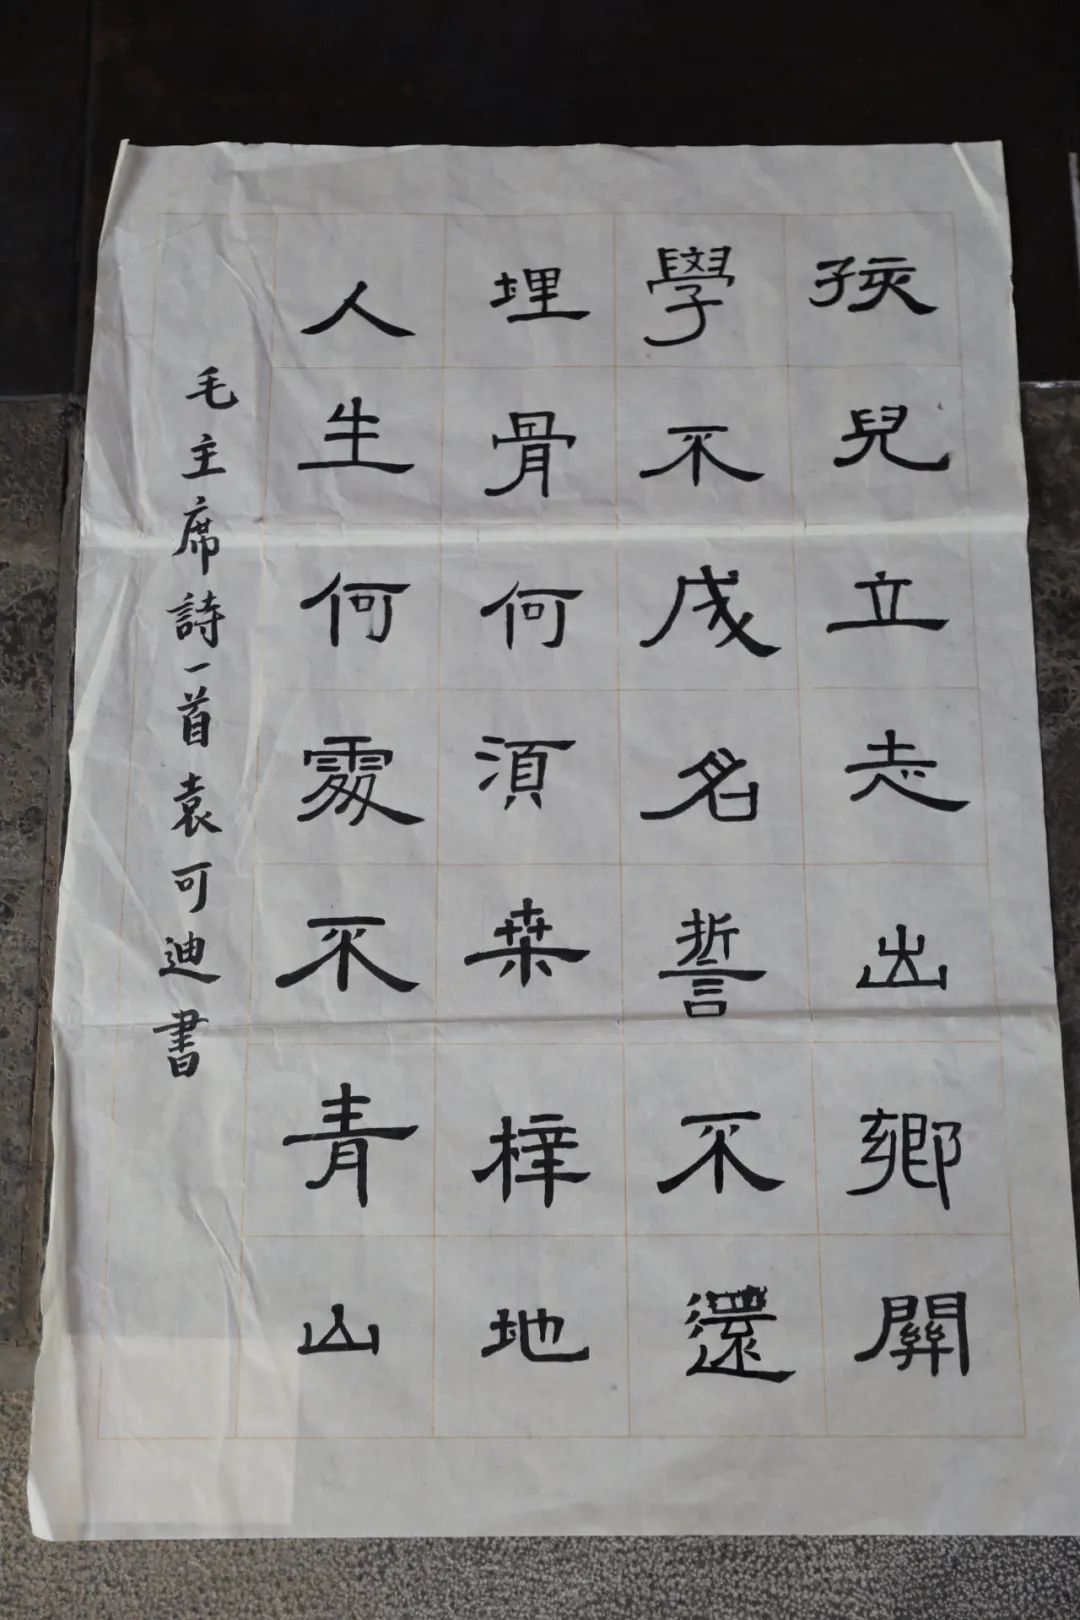 孩兒立志出鄉關
學不成名誓不還
埋骨何須桑梓地
人生何處不青山
毛主席詩一首袁可迪書